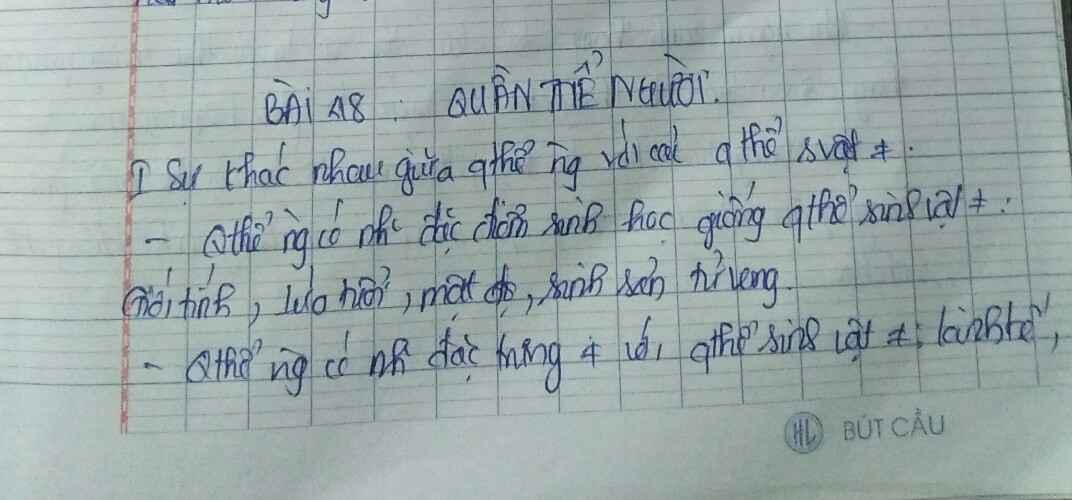 BÀI 48 : QUẦN THỂ NGƯỜI.
I Sự khác nhau giữa qthể ng với các qthể svật ≠.
- Qthể ng có nh đặc điểm sinh học giống qthể sinh vật ≠ :
Giới tính, lứa tuổi, mật độ, sinh sản tử vong.
- Qthể ng có nh đặc trưng ≠ với qthể sinh vật ≠ : kinh tế,
HL BÚT CẦU